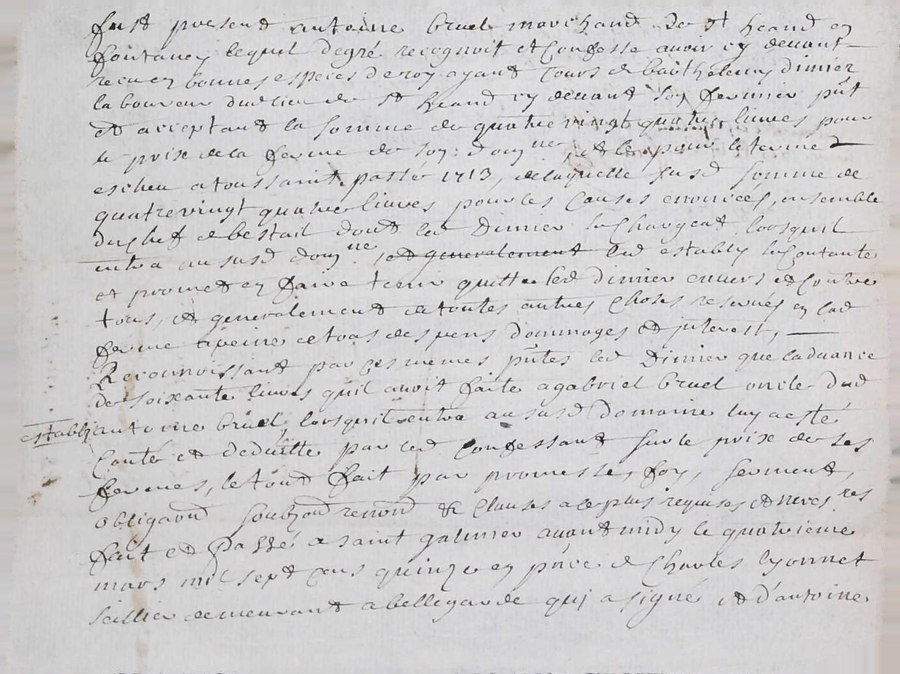 fust present antoine bruel marchand de st heand en
fontaney lequel degré recognoit et Confesse avoir cy devant
receu en bonnes especes de roy ayant Cours de barthelemy dimier
laboureur dud lieu de st heand cy devant son fermier pñt
et acceptant la somme de quatrevingt quatre livres pour
le prix de la ferme de son domne pour le terme
escheu a toussaint passée 1713, de laquelle susd somme de
quatrevingt quatre livres pour les Causes enoncées, ensemble
du chef de bestail dont led Dimier se Chargeat lorsquil
entra au susd domne, et generalement led estably se Contante
et promet en faire tenir quitte led dimier envers et Contre
tous, et generalement de toutes autres Choses reservées en lad
ferme a peine de tous despens dommages et interest,
Reconnoissant par ces memes pñtes led Dimier que ladvance
de soixante livres quil avoit faite a gabriel bruel oncle dud
estably antoine bruel lorsquil entra au susd domaine luy a esté
Conté et deduitte par led Confessant sur le prix de ses
fermes, le tout fait par promesse, foy, serment,
obligaond renond & Clauses a ce plus requises et necesres
fait et Passé a saint galmier avant midy le quatrieme
mars mil sept cens quinze en pñce de Charles Lyonnet
sellier demeurant a bellegarde qui a signé et d'antoine